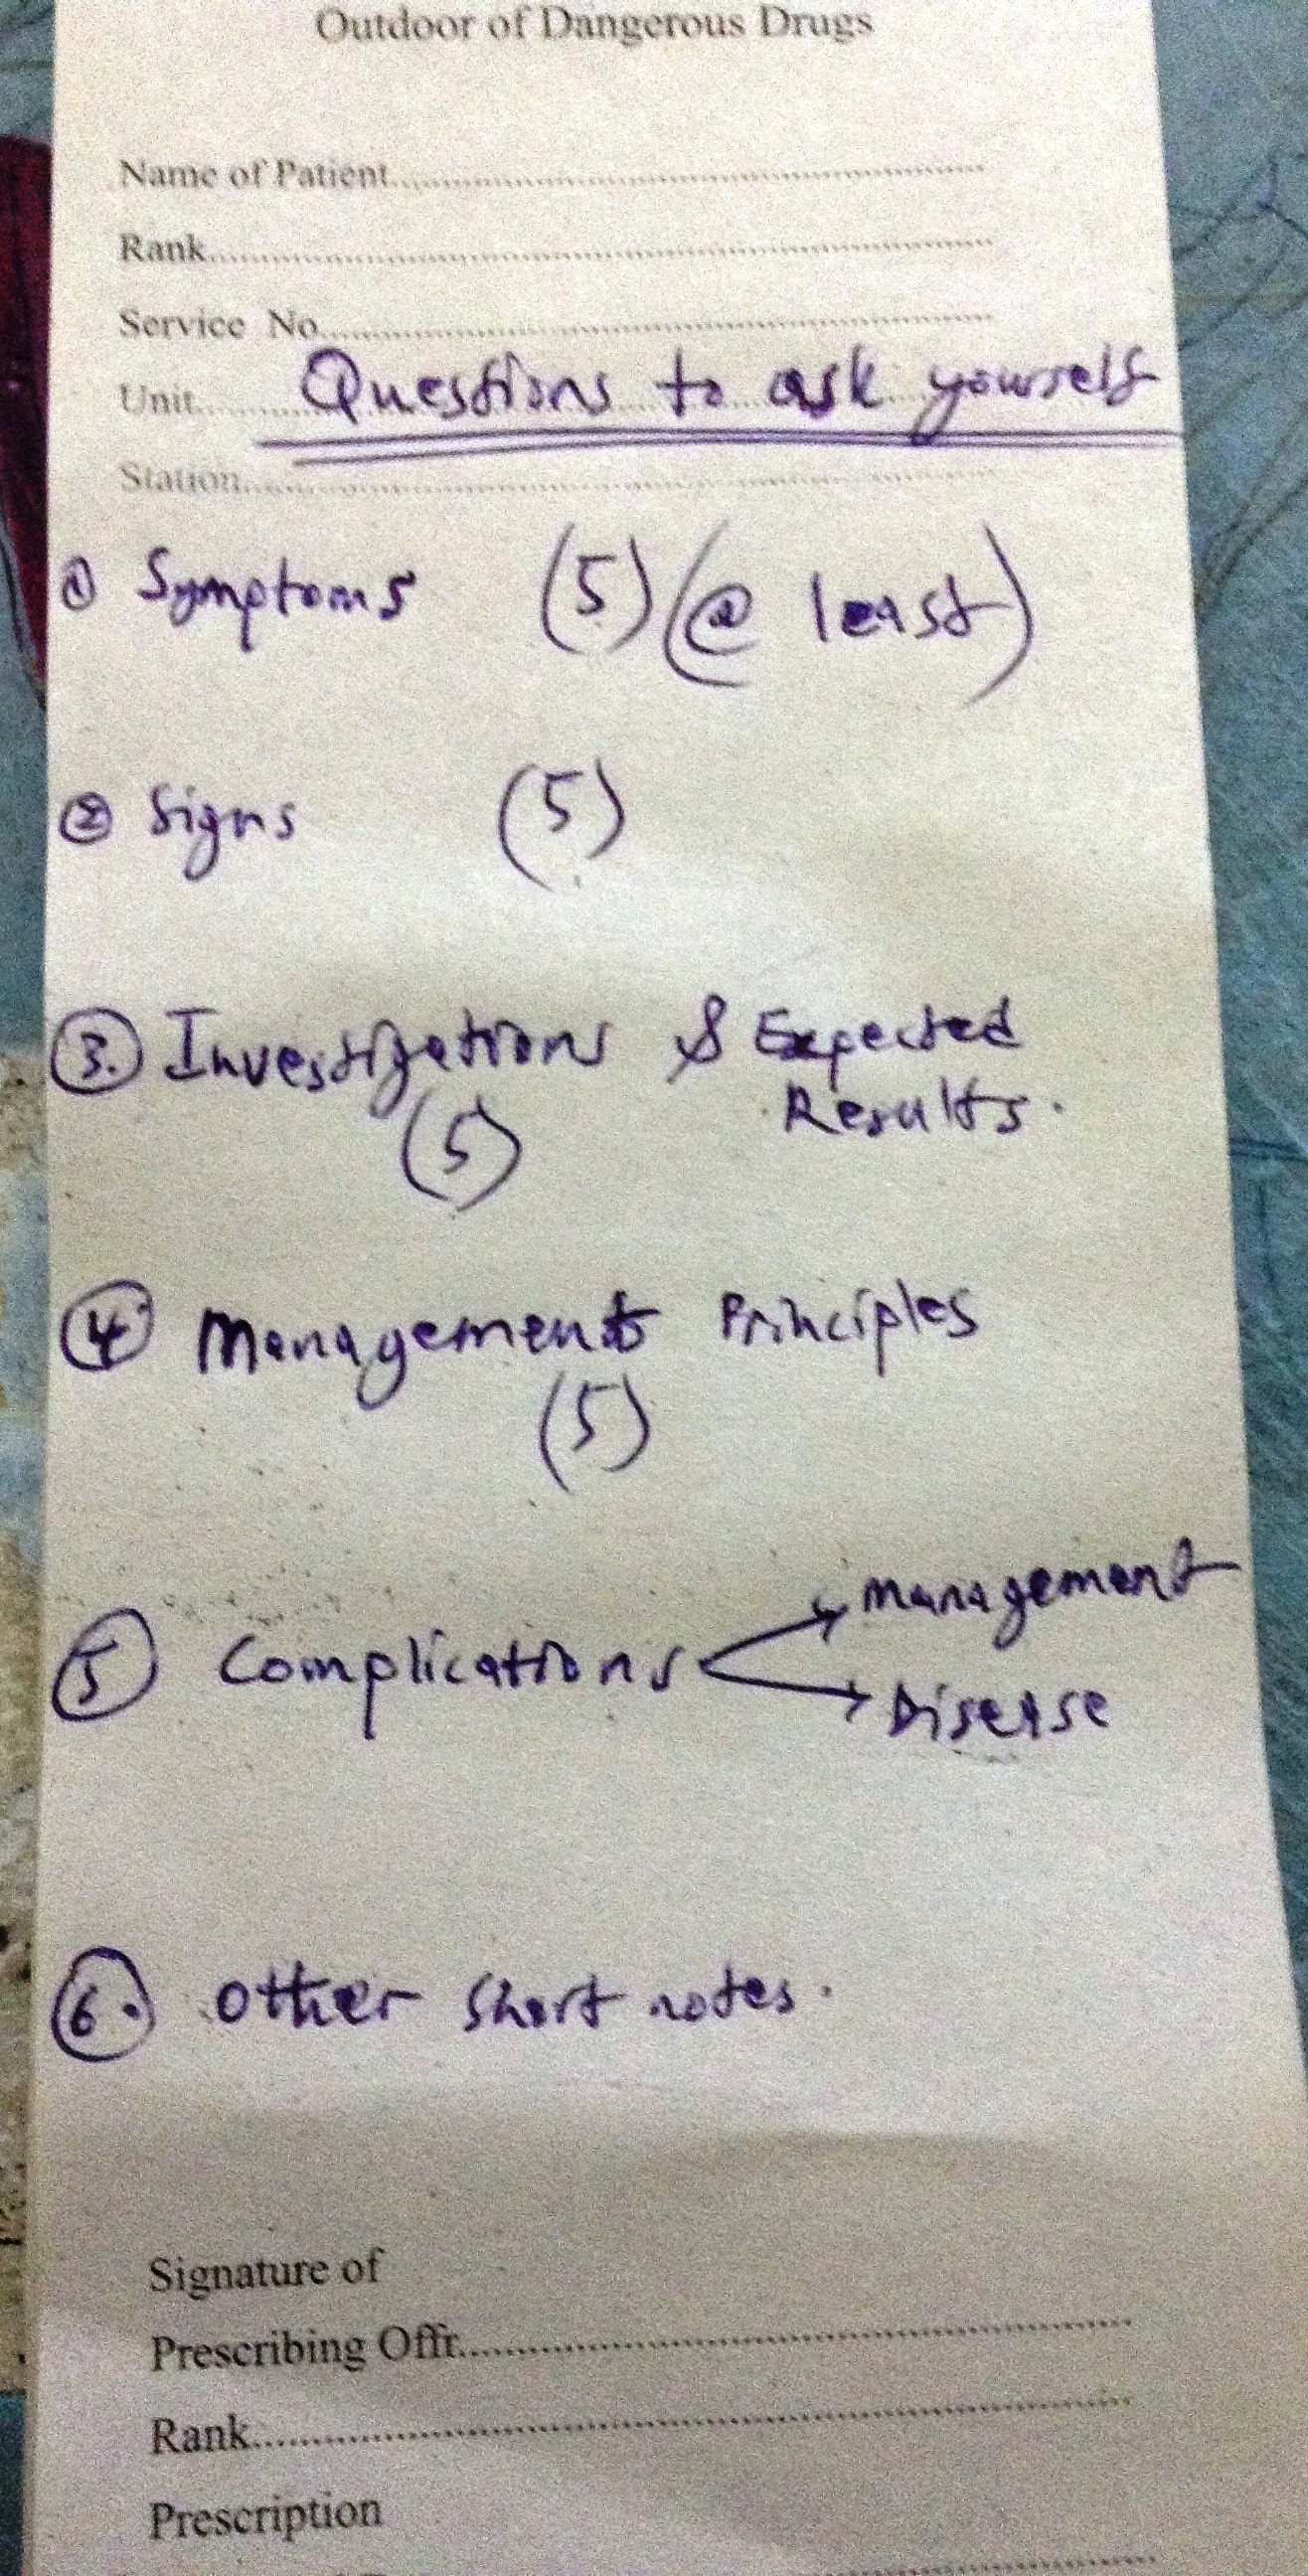 Outdoor of Dangerous Drugs
Name of Patient
Rank
Service No
Unit
Questions to ask yourself
Station
① Symptoms (5) (@ least)
② Signs (5)
③. Investigations & Expected
Results.
(5)
④ Management Principles
(5)
⑤ Complications → Management
→ Disease
⑥. Other Short notes.
Signature of
Prescribing Offr.
Rank
Prescription